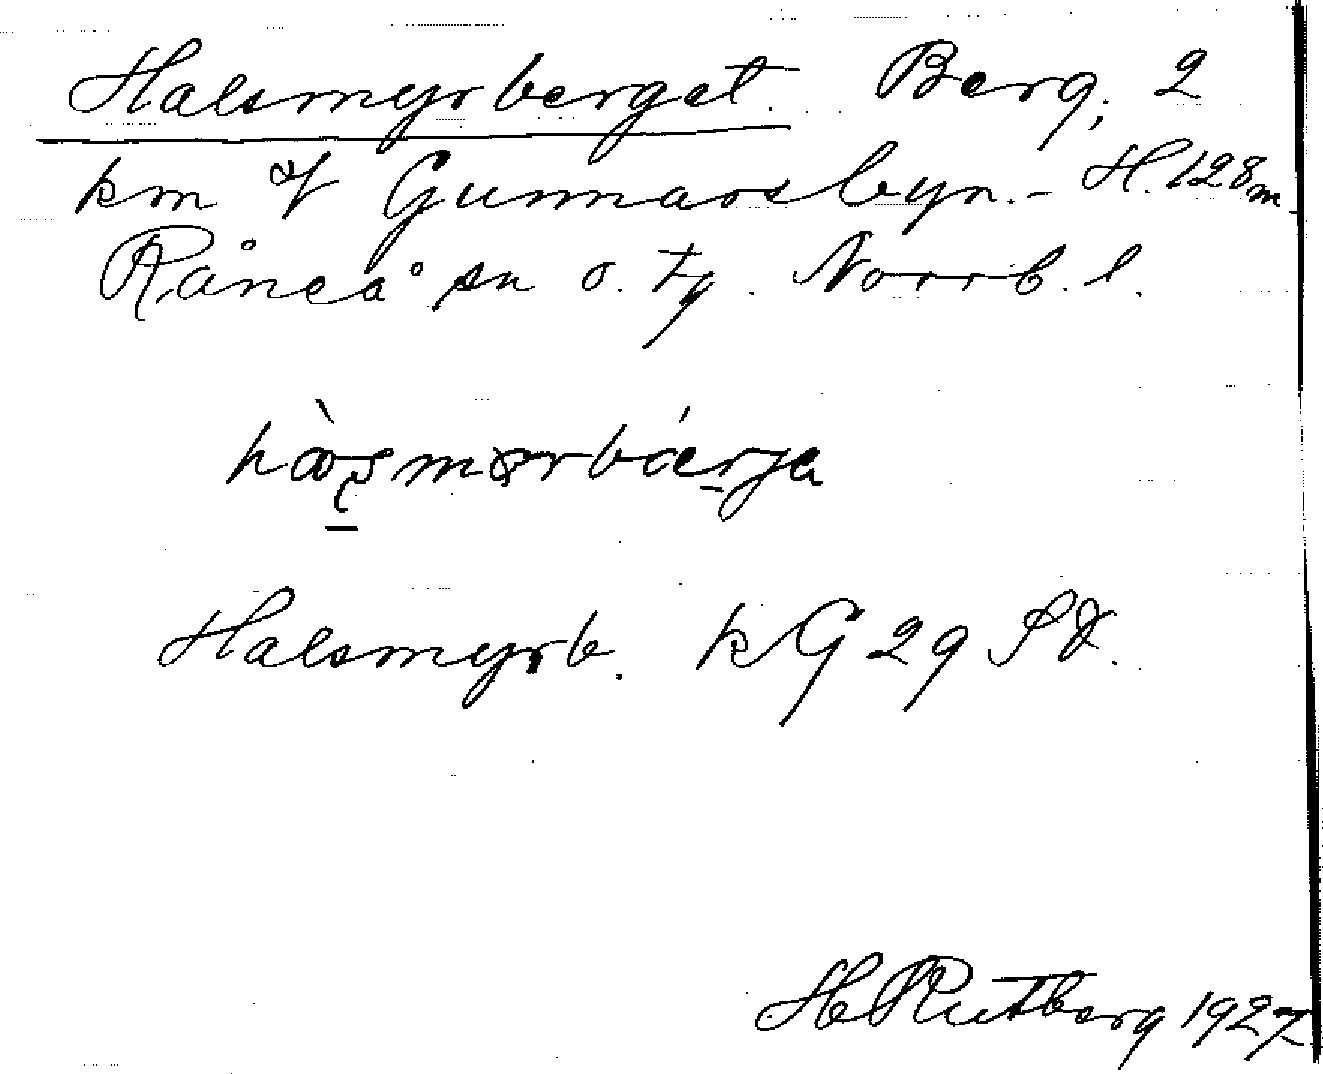 Halsmyrberget. Berg; 2
km of Gunnarsbyn. - H. 128 m.
Råneå sn o. tg. Norrb. l.
Halsmyrb. kG 29
H Rutberg 1927